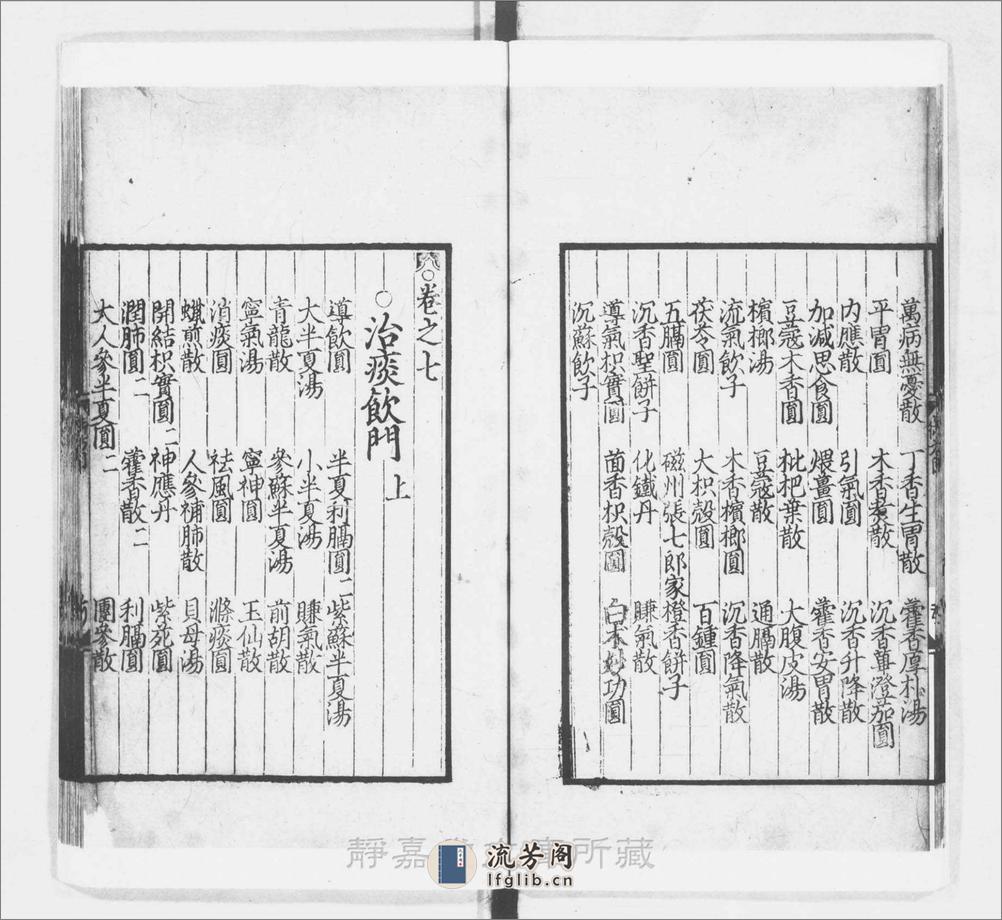 萬病無憂散 丁香生胃散 藿香厚朴湯
平胃圓 木香煑散 沉香蓽澄茄圓
内應散 引氣圓 沉香升降散
加減思食圓 煨薑圓 藿香安胃散
豆蔻木香圓 枇杷葉散 大腹皮湯
檳榔湯 豆蔻散 通膈散
流氣飲子 木香檳榔圓 沉香降氣散
茯苓圓 大枳殻圓 百鍾圓
五膈圓 磁州張七郎家橙香餅子
沉香聖餅子 化鐵丹 賺氣散
導氣枳實圓 茴香枳殻圓 白术妙功圓
沉蘇飲子
○卷之七
○治痰飲門 上
導飲圓 半夏利膈圓二 紫蘇半夏湯
大半夏湯 小半夏湯 賺氣散
青龍散 參蘇半夏湯 前胡散
寧氣湯 寧神圓 玉仙散
消痰圓 祛風圓 滌痰圓
蠟煎散 人參補肺散 貝母湯
開結枳實圓二 神應丹 紫死圓
潤肺圓二 藿香散二 利膈圓
大人參半夏圓二 團參散
靜嘉堂文庫所藏
流芳阁
lfglib.cn